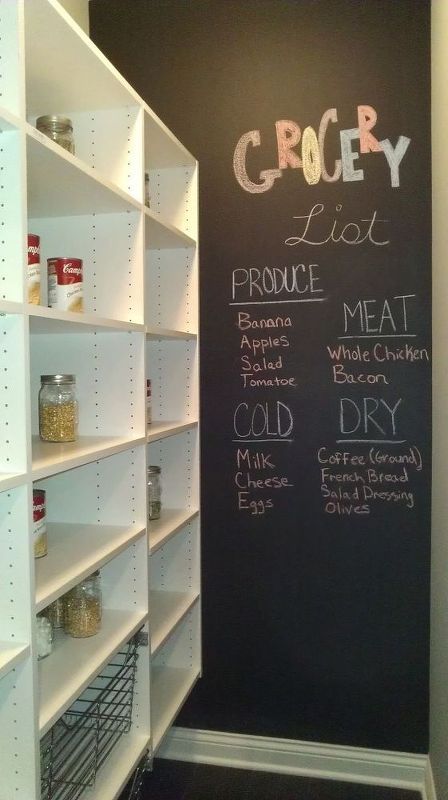 GROCERY
List
PRODUCE
Banana
Apples
Salad
Tomatoe
MEAT
Whole Chicken
Bacon
COLD
Milk
Cheese
Eggs
DRY
Coffee (Ground)
French Bread
Salad Dressing
Olives
Camp
Campb